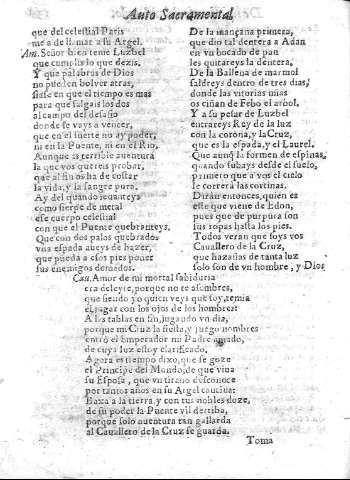 Auto Sacramental
que del celestial Paris
me a de llamar a su Argel,
Am. Señor bien teme Luzbel
que cumplis lo que dezis.
Y que palabras de Dios
no pueden bolver atras,
fuese en que el tiempo es mas
para que salgais los dos
al campo del desafio
donde se vays a vencer,
que en el fuerte no ay poder,
ni en la Puente, ni en el Rio,
Aunque es terrible aventura
la que vos quereis probar,
que al fin os ha de costar
la vida, y la sangre pura.
Ay del quando seaureys
como sierpe de metal
ese cuerpo celestial
con que el Puente quebranteys.
Que con dos palos quebrados
vna espada aueys de hazer,
que pueda a esos pies poner
sus enemigos domados.
De la mançana primera,
que dio tal dentera a Adan
en vn bocado de pan
les quitareys la dentera.
De la Ballena de marmol
saldreys dentro de tres dias,
donde las vitorias mias
os ciñan de Febo el arbol.
Y a pesar de Luzbel
entrareys Rey de la luz
con la corona, y la Cruz,
que es la espada, y el Laurel.
Que aunq̃ la formen de espinas,
quando subays desde el suelo,
primero que a vos el cielo
le correrà las cortinas.
Diràn entonces, quien es
este que viene de Edon,
pues que de purpura son
sus ropas hasta los pies.
Todos veran que soys vos
Cauallero de la Cruz,
que hazañas de tanta luz
solo son de vn hombre, y Dios
Cau. Amor de mi mortal sabiduria
era deleyte, porque no te asombres,
que siendo yo quien veys que soy, temia
el jugar con los ojos de los hombres:
A las tablas en fin, jugando vn dia,
porque mi Cruz la fiesta, y juego nombres
entrò el Emperador mi Padre amado,
de cuya luz estoy clarificado.
Agora es tiempo dixo, que se goze
el Principe del Mundo, de que viua
su Esposa, que vn tirano desconoce
por tantos años en su Argel cautiua:
Baxa a la tierra, y con tus nobles doze,
de su poder la Puente vil derriba,
porque solo auentura tan gallarda
al Cauallero de la Cruz se guarda.
Toma